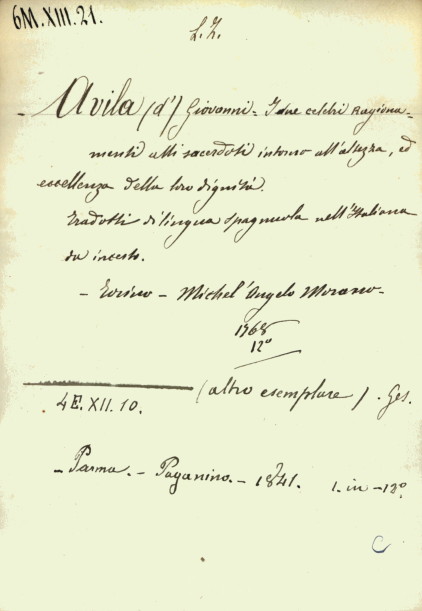 6M.XIII.21.
L.Z.
Avila (d') Giovanni = I due celebri Ragiona-
menti alli sacerdoti intorno all'altezza, ed
eccellenza della loro dignità.
Tradotti di lingua Spagnuola nell'Italiana
da incerto.
- Torino - Michel'Angelo Morano -
1768
12º
(altro esemplare). Ges.
4E.XII.10.
- Parma. - Paganino. - 1841. 1. in - 12º
C